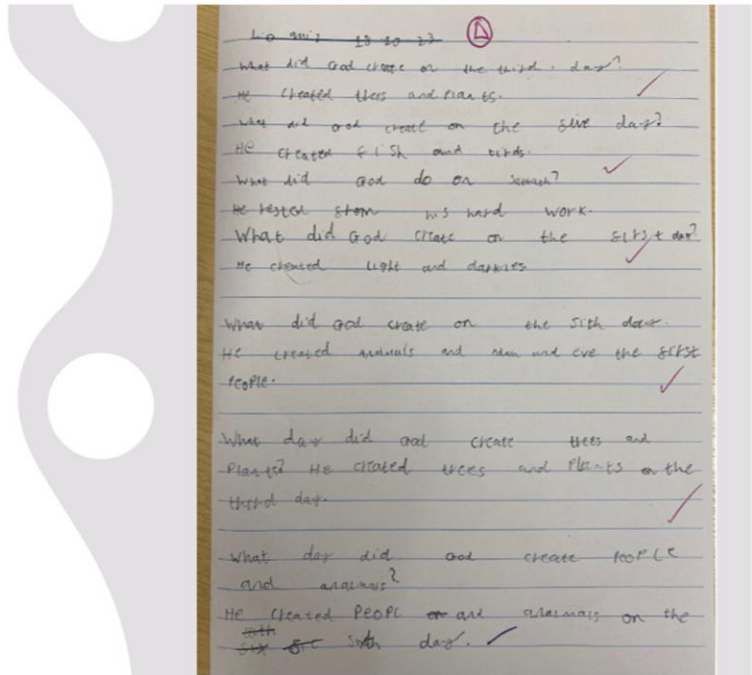 18 10 23
What did God create on the third. day?
He created trees and Plants.
What did God create on the five day?
He created fish and birds.
What did God do on
He rested from his hard work.
What did God create on the first day?
He created light and darknes
What did God create on the sith day.
He created and and eve the first
PeoPle.
What day did God create trees and
Plants? He created trees and Plants on the
day.
What day did God create PeoPle
and
He created PeoPl and on the
six sith day.